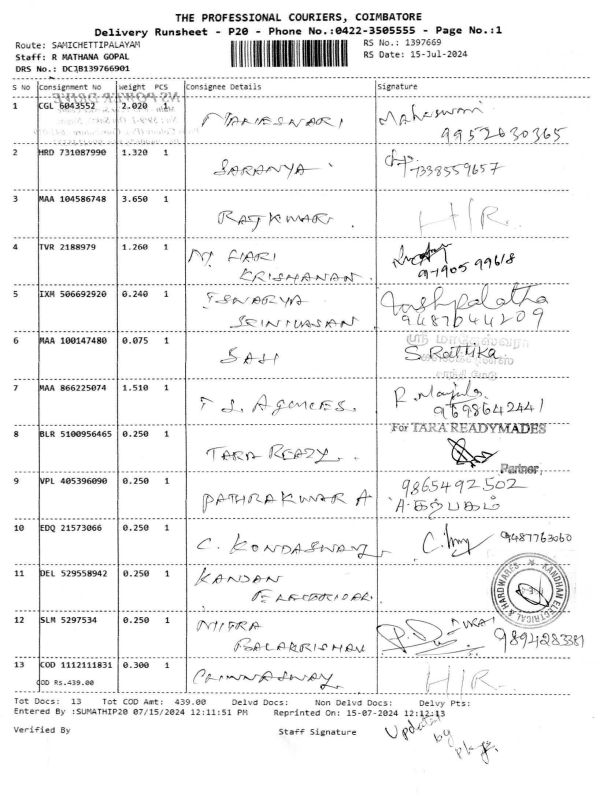 THE PROFESSIONAL COURIERS, COIMBATORE
Delivery Runsheet - P20 - Phone No.:0422-3505555 - Page No.:1
Route: SAMICHETTIPALAYAM
RS No.: 1397669
Staff: R MATHANA GOPAL
RS Date: 15-Jul-2024
DRS No.: DCJB139766901
S No Consignment No Weight PCS Consignee Details Signature
1 CGL 6043552 2.020 1
9952630365
2 HRD 731087990 1.320 1 SARANYA
7338559657
3 MAA 104586748 3.650 1 RAJKUMAR H/R.
4 TVR 2188979 1.260 1 M HARI
KRISHANAN.
97905 99618
5 IXM 506692920 0.240 1 ISWARYA
SRINIVASAN
Pushpalatha
9487044209
6 MAA 100147480 0.075 1 SAJI
ஸ்ரீ மாதேஸ்வரா
S. Rathika
7 MAA 866225074 1.510 1 T S. AGENCIES.
R. Manjula
9698642441
8 BLR 5100956465 0.250 1 TARA READY..
For TARA READYMADES
Partner,
9 VPL 405396090 0.250 1 PATHRAKUMAR A
9865492502
A. கற்பகம்
10 EDQ 21573066 0.250 1 C. KONDASWAMY
9487763060
11 DEL 529558942 0.250 1 KANDAN
ELECTRICAL
KANDHAN ELECTRICAL & HARDWARES
12 SLM 5297534 0.250 1 MITRA
BALAKRISHAN
DURAI
9894283381
13 COD 1112111831 0.300 1 CHINNASWAMY H/R.
COD Rs.439.00
Tot Docs: 13 Tot COD Amt: 439.00 Delvd Docs: Non Delvd Docs: Delvy Pts:
Entered By :SUMATHIP20 07/15/2024 12:11:51 PM Reprinted On: 15-07-2024 12:12:13
Verified By Staff Signature
Updated
by